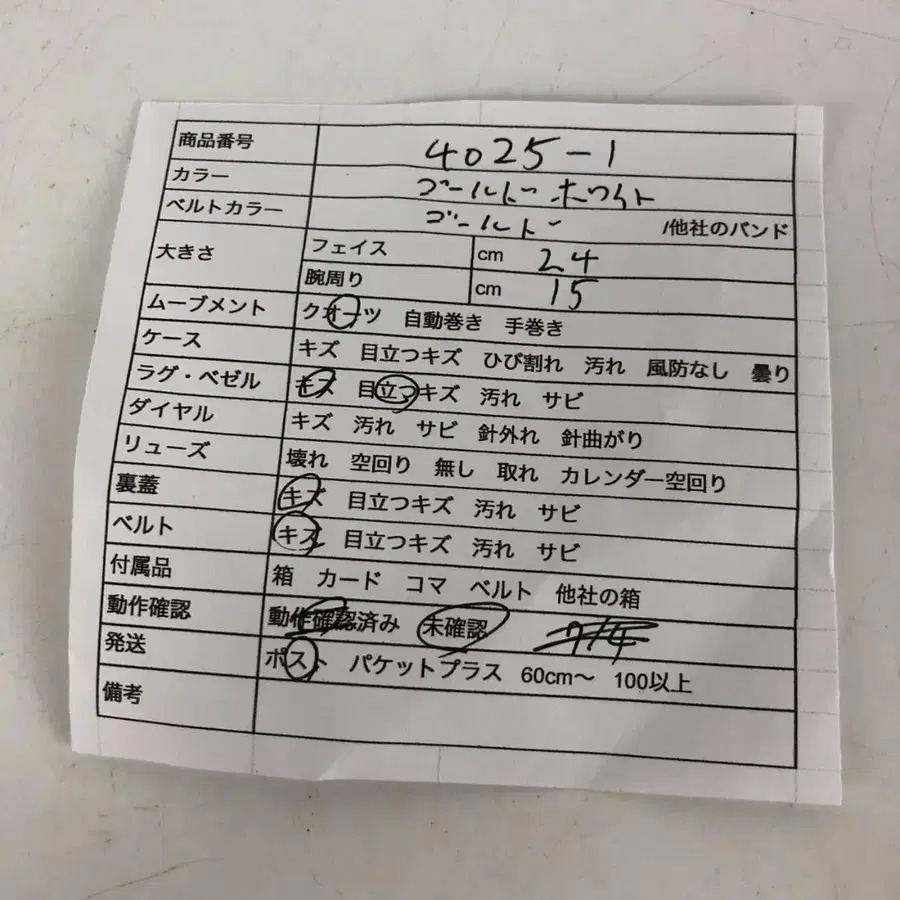 商品番号 4025-1
カラー ゴールド ホワイト
ベルトカラー ゴールド /他社のバンド
大きさ フェイス cm 24
腕周り cm 15
ムーブメント クオーツ 自動巻き 手巻き
ケース キズ 目立つキズ ひび割れ 汚れ 風防なし 曇り
ラグ・ベゼル キズ 目立つキズ 汚れ サビ
ダイヤル キズ 汚れ サビ 針外れ 針曲がり
リューズ 壊れ 空回り 無し 取れ カレンダー空回り
裏蓋 キズ 目立つキズ 汚れ サビ
ベルト キズ 目立つキズ 汚れ サビ
付属品 箱 カード コマ ベルト 他社の箱
動作確認 動作確認済み 未確認
発送 ポスト パケットプラス 60cm〜 100以上
備考